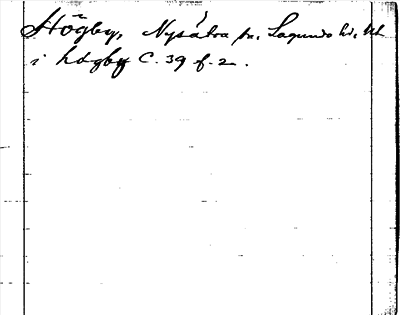 Högby, Nysätra sn, Lagunda hd, Upl
i högby C. 39 f. 2.